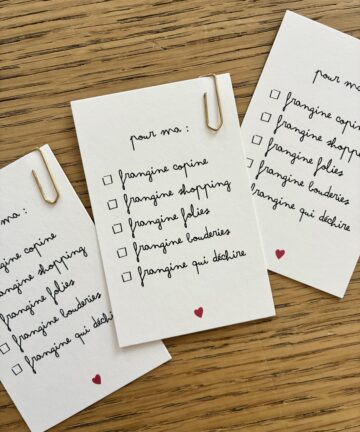 pour ma :
frangine copine
frangine shopping
frangine folies
frangine bouderies
frangine qui déchire
ma :
gine copine
gine shopping
gine folies
frangine bouderies
frangine qui déchire
pour ma
frangine copine
frangine shopping
frangine folies
frangine bouderies
frangine qui déchire